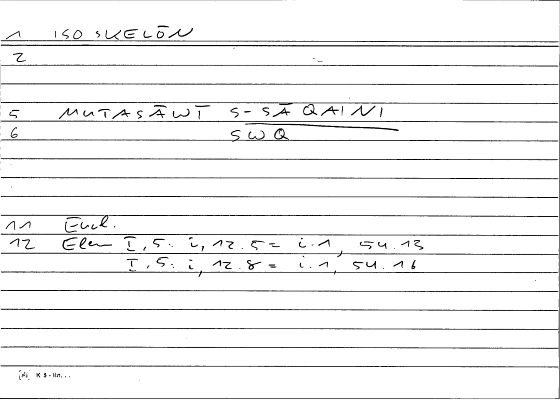 1 ISOSKELŌN
2
5 MUTASĀWĪ S-SĀQAINI
6 SWQ
11 Eucl.
12 Elem I,5: i, 12.5 = i.1, 54.13
I,5: i, 12.8 = i.1, 54.16
K 5